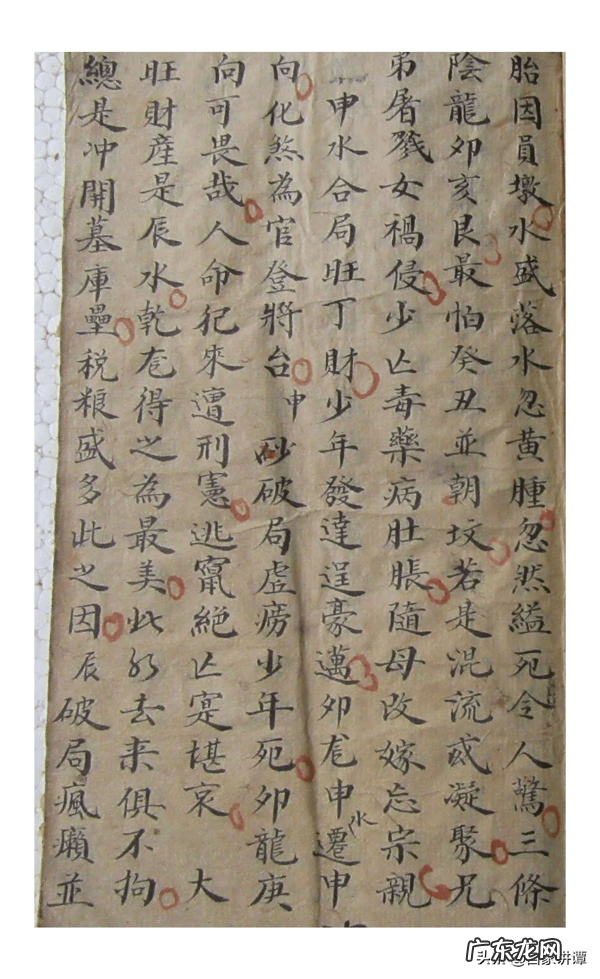 胎因員墩水盛落水忽黄腫忽然縊死令人驚三條
陰龍卯亥艮最怕癸丑並朝坟若是混流或凝聚兄
弟屠戮女禍侵少亡毒藥病肚脹隨母改嫁忘宗親
申水合局旺丁財少年發達逞豪邁卯龙申水遷申
向化煞為官登將台申砂破局虚痨少年死卯龍庚
向可畏哉人命犯來遭刑憲逃竄絕亡寔堪哀 大
旺財産是辰水乾龙得之為最美此水去来俱不拘
總是冲開墓庫壘税粮盛多此之因辰破局瘋癩並
广东龙网